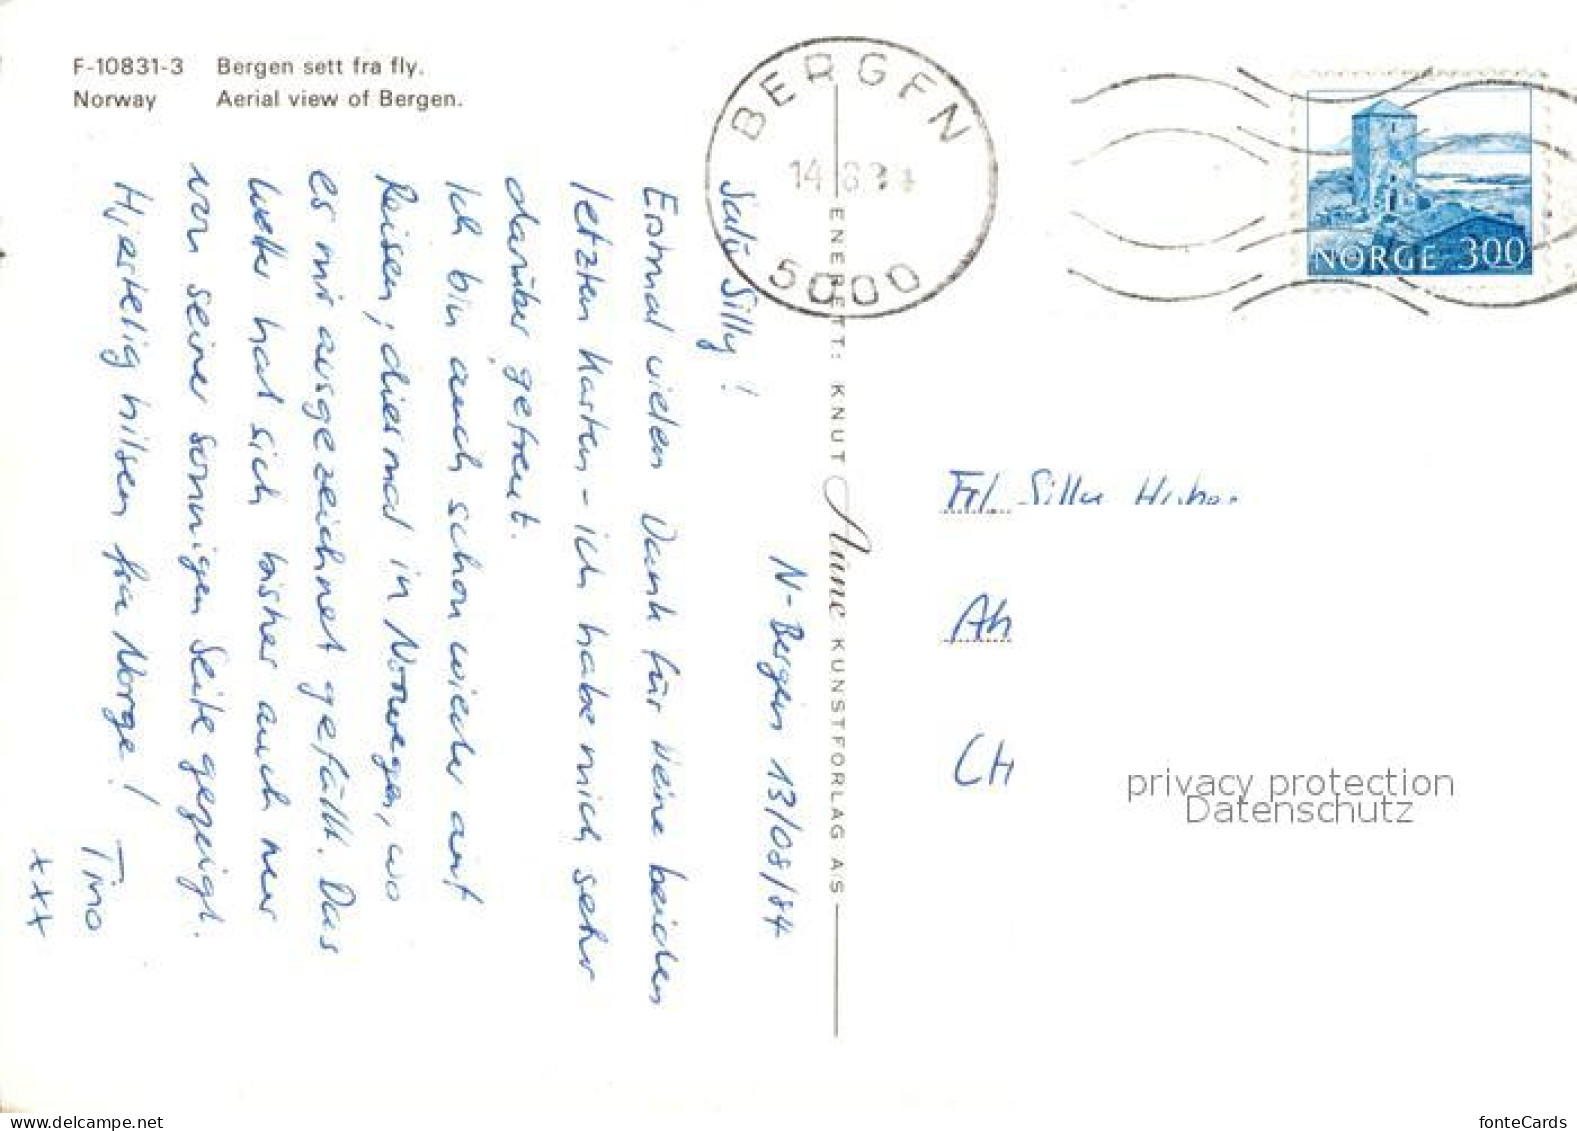 F-10831-3 Bergen sett fra fly.
Norway Aerial view of Bergen.
BERGEN
14 8 84
5000
NORGE 300
N-Bergen 13/08/84
Salü Silly!
Erstmal vielen Dank für Deine beiden
letzten Karten - ich habe mich sehr
darüber gefreut.
Ich bin auch schon wieder auf
Reisen, diesmal in Norwegen, wo
es mir ausgezeichnet gefällt. Das
Wetter hat sich bisher auch nur
von seiner sonnigen Seite gezeigt.
Hjertelig hilsen fra Norge!
Tino
xxx
ENERETT: KNUT Aune KUNSTFORLAG A/S
Frl. Silly
CH
privacy protection
Datenschutz
www.delcampe.net
fonteCards